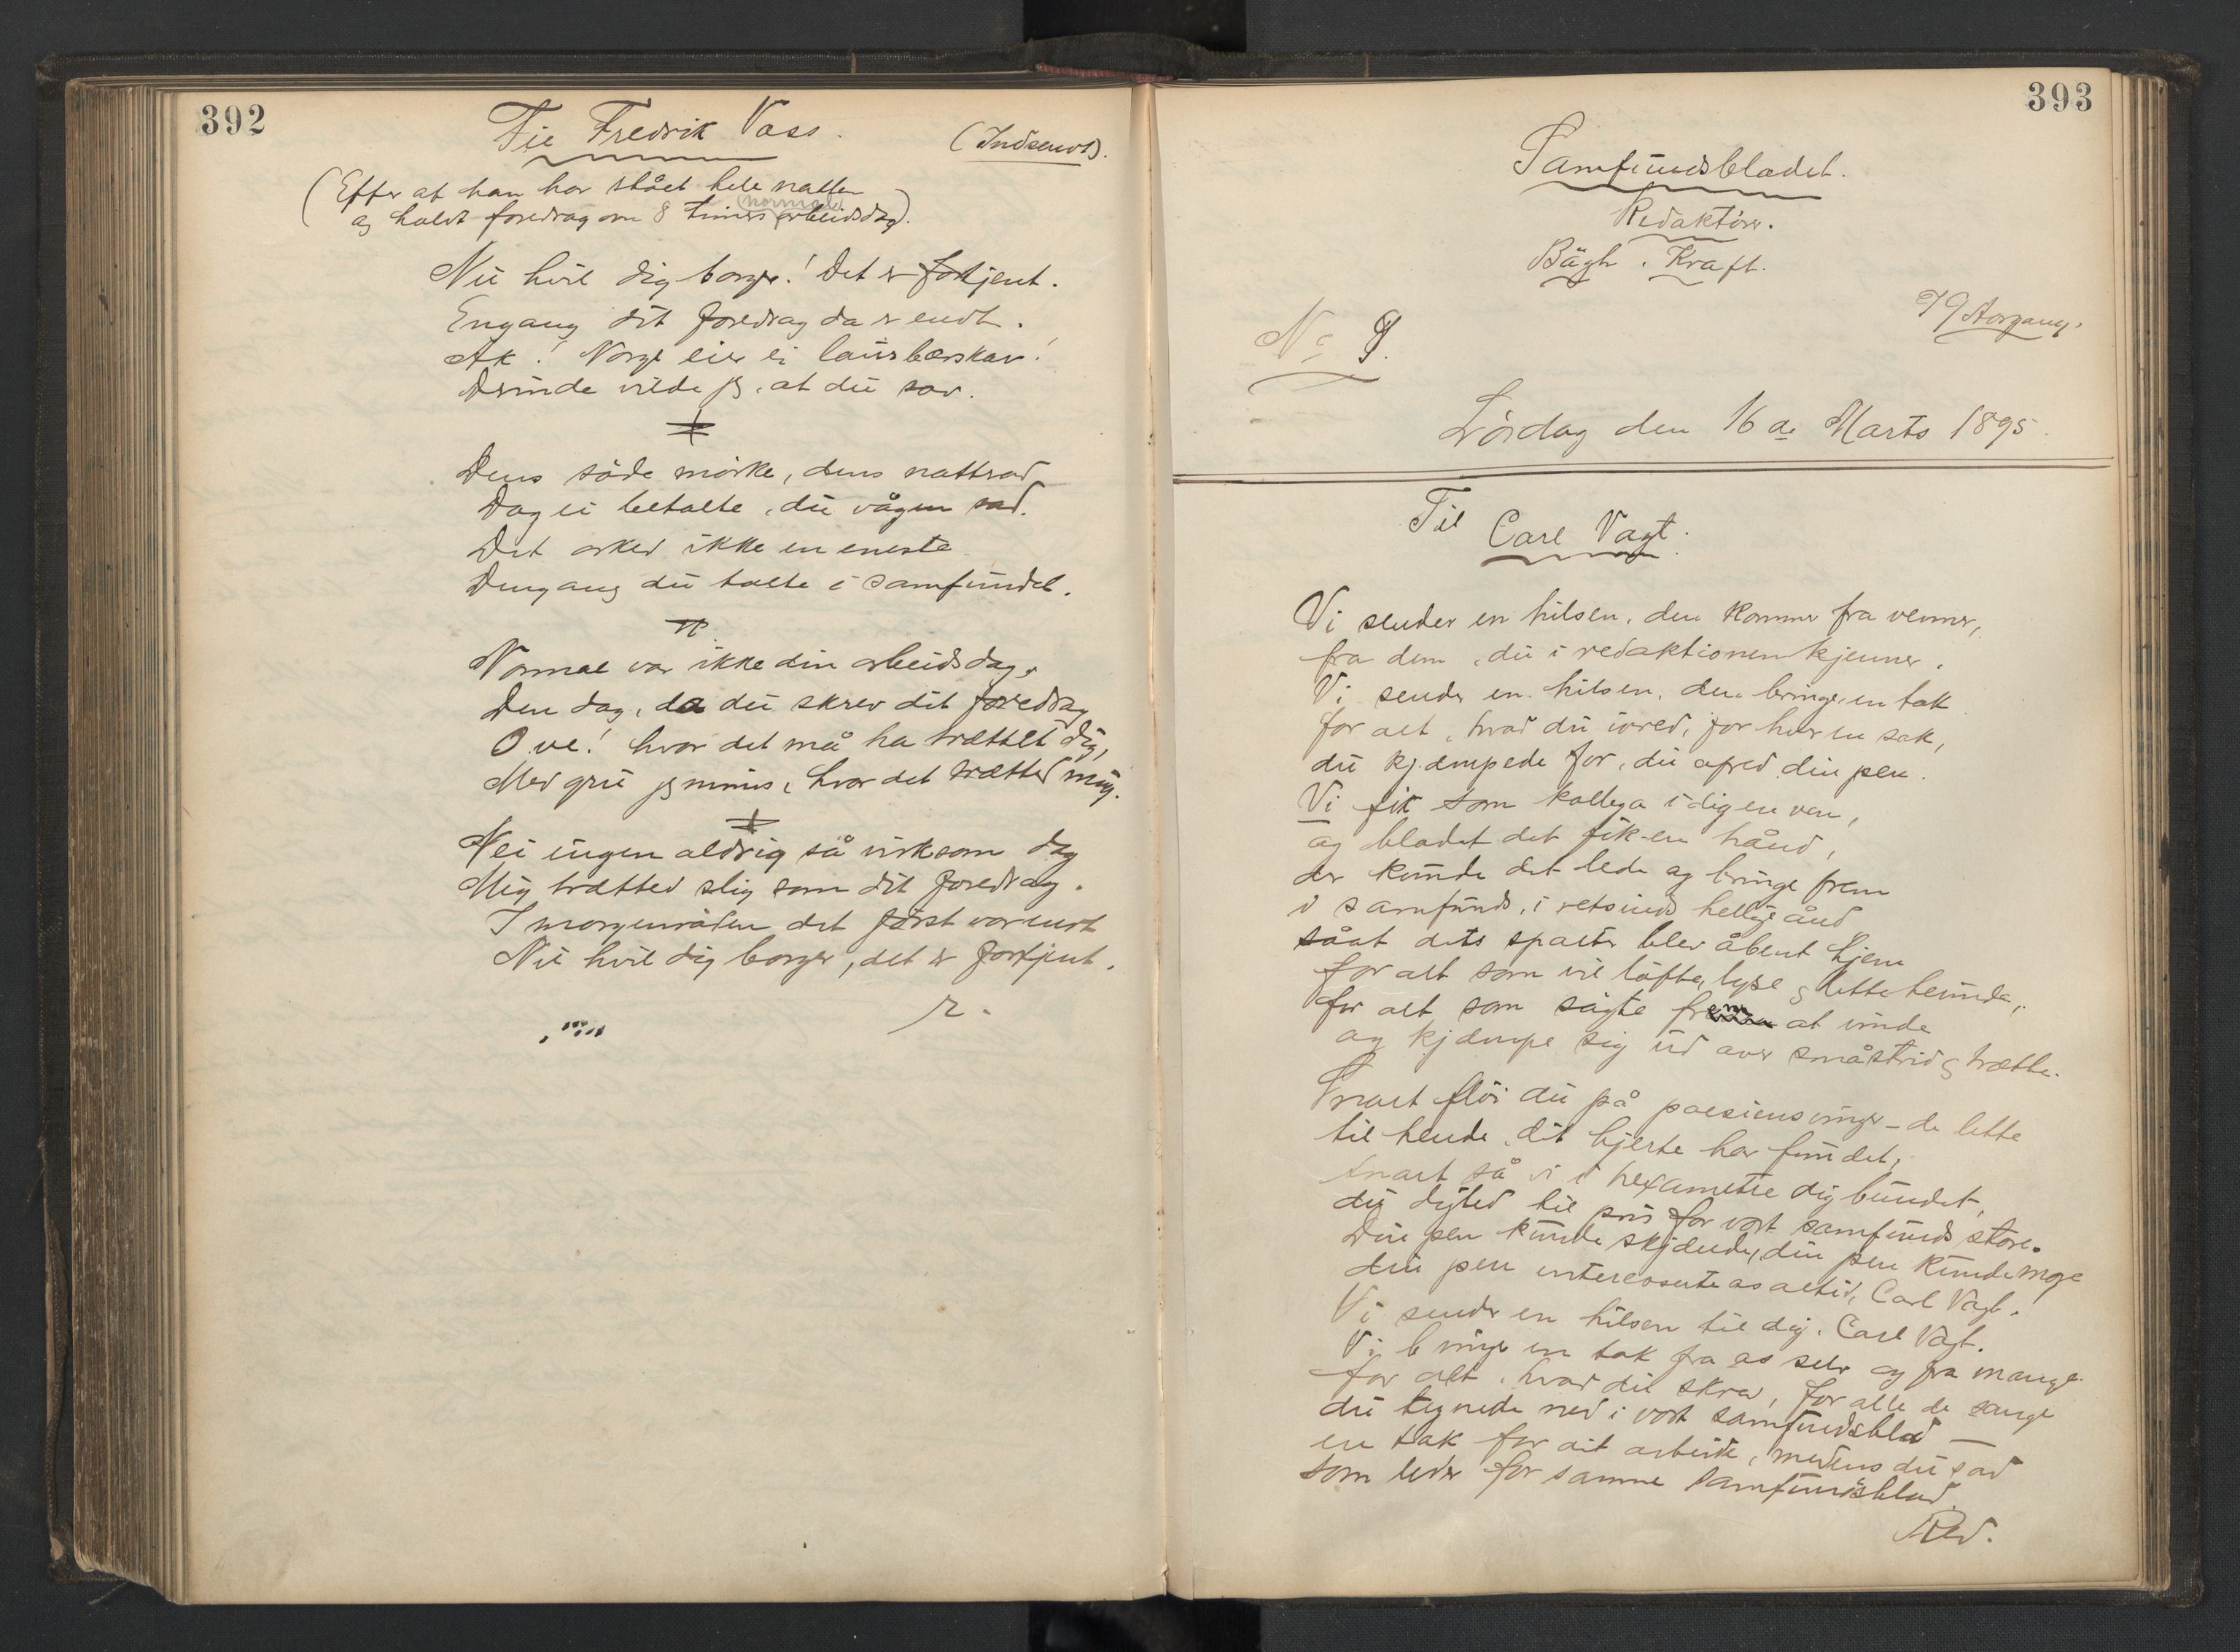 392
Til Fredrik Voss.
(Indsendt).
(Efter at han har stået hele natten
og holdt foredrag om 8 timers normalarbeidsdag).
Nu hvil dig borger! Det er fortjent.
Engang dit foredrag da er endt.
Ak! Norge eier ei laurbærskav!
Derinde vilde jeg, at du sov.
Dens søde mørke, dens nattrad
Dog ei betalte, du vågen sad.
Det orked ikke en eneste
Dengang du talte i samfundet.
Normal var ikke din arbeidsdag,
Den dag, da du skrev dit foredrag
O ve! hvor det må ha trættet dig,
Med gru jeg mindes, hvor det trætted mig.
Nei ingen aldrig så virksom dag
Mig trætted slig som dit foredrag.
I morgenrøden det først var endt
Nu hvil dig borger, det er fortjent.
r.
393
Samfundsbladet.
Redaktører.
Bägh . Kraft.
No 9.
79 Aargang.
Lørdag den 16de Marts 1895.
Til
Carl Vagt.
Vi sender en hilsen, den kommer fra venner,
fra dem, du i redaktionen kjenner.
Vi sender en hilsen, den bringer en tak
for alt, hvad du ivred, for hver en sak,
du kjæmpede for, du ofred din pen.
Vi fik som kollega i dig en ven,
og bladet det fik en hånd,
der kunde det lede og bringe frem
i samfunds, i retsinds hellige ånd
såat dets spalter blev åbent hjem
for alt som vil løfte, lyse og lette herinde,
for alt som søgte frem at vinde
og kjæmpe sig ud over småstrid og trætte.
Snart fløi du på poesiens vinger – de lette
til hende, dit hjerte har fundet,
snart så vi i hexametre dig bundet,
du digted til pris for vort samfunds store.
Din pen kunde skjænde, din pen kunde more
din pen interesserte os altid, Carl Vagt.
Vi sender en hilsen til dig, Carl Vagt.
Vi bringer en tak fra os selv og fra mange
for alt, hvad du skrev, for alle de sange
du tegnede ned i vort samfundsblad –
en tak for dit arbeide, medens du sad
som leder for samme samfundsblad.
Red.